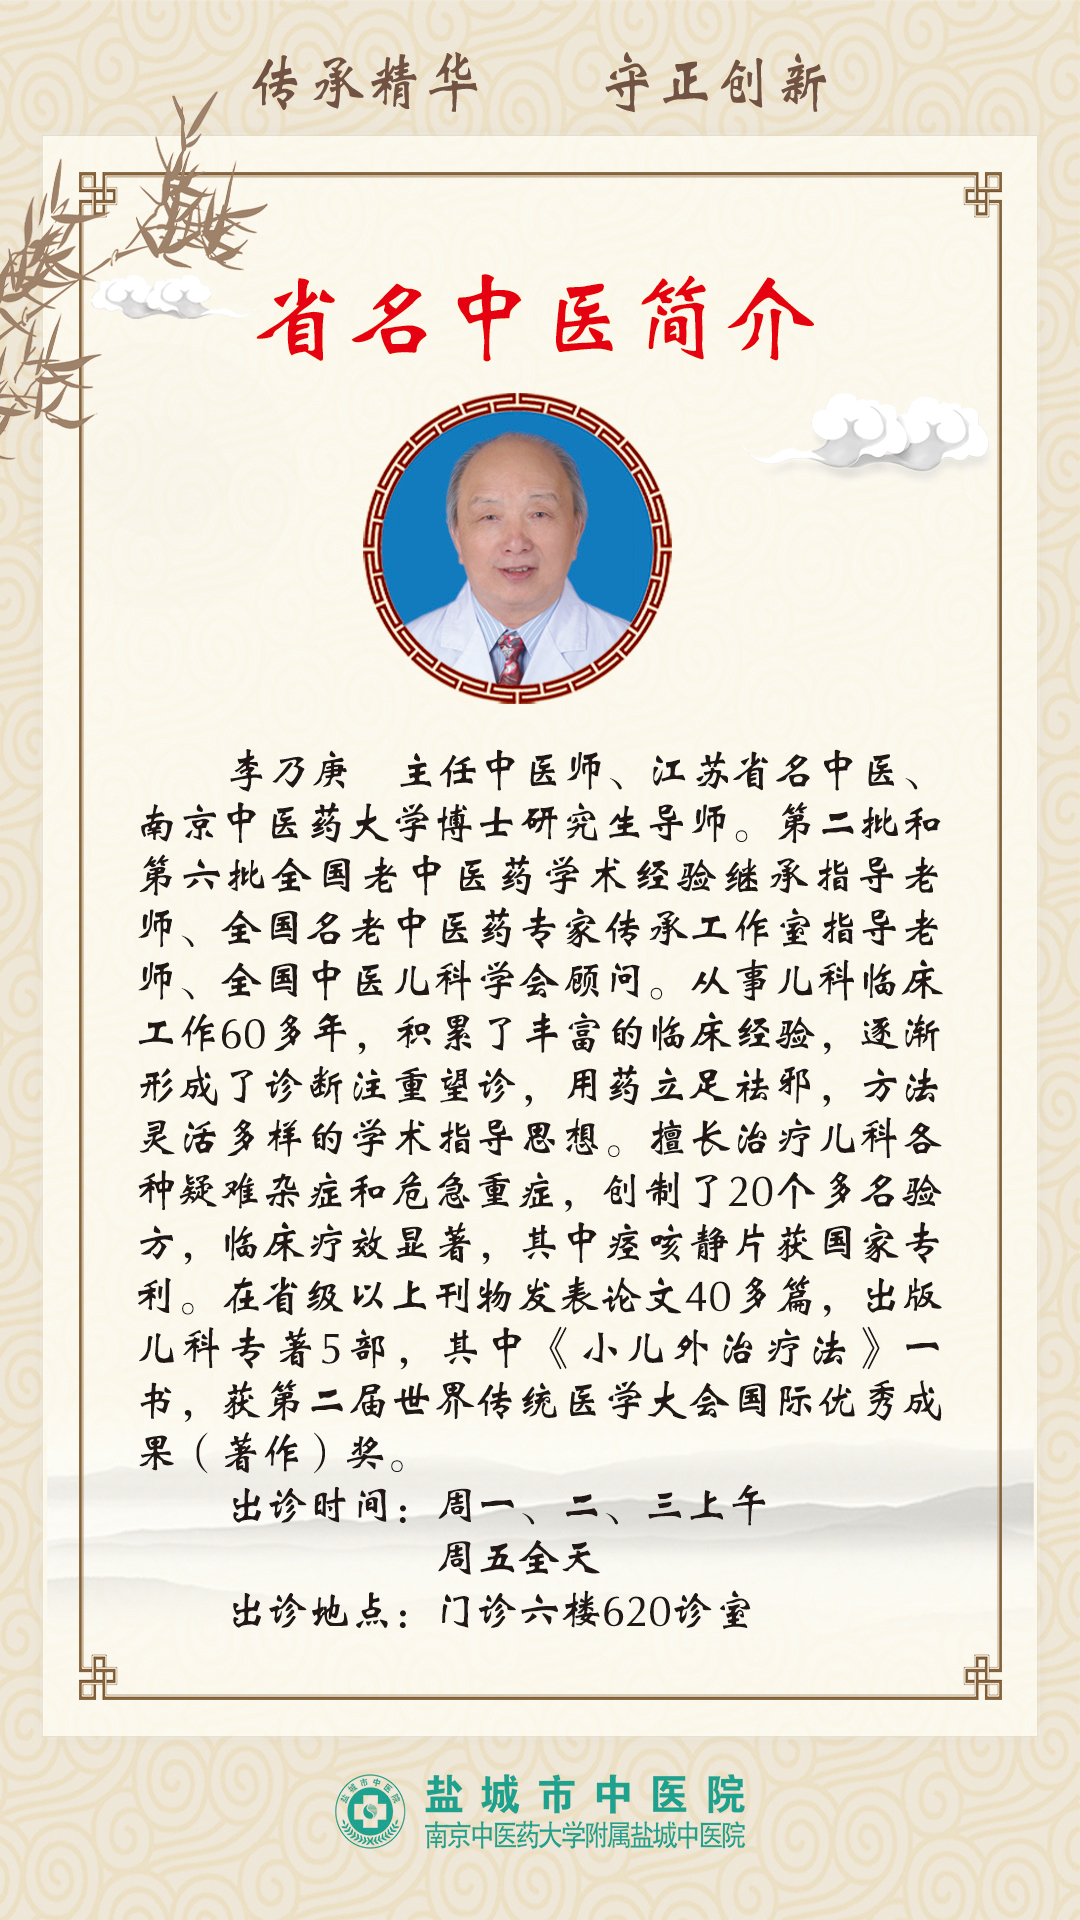 传承精华 守正创新
省名中医简介
李乃庚 主任中医师、江苏省名中医、
南京中医药大学博士研究生导师。第二批和
第六批全国老中医药学术经验继承指导老
师、全国名老中医药专家传承工作室指导老
师、全国中医儿科学会顾问。从事儿科临床
工作60多年，积累了丰富的临床经验，逐渐
形成了诊断注重望诊，用药立足祛邪，方法
灵活多样的学术指导思想。擅长治疗儿科各
种疑难杂症和危急重症，创制了20个多名验
方，临床疗效显著，其中痉咳静片获国家专
利。在省级以上刊物发表论文40多篇，出版
儿科专著5部，其中《小儿外治疗法》一
书，获第二届世界传统医学大会国际优秀成
果（著作）奖。
出诊时间：周一、二、三上午
周五全天
出诊地点：门诊六楼620诊室
盐城市中医院
盐城市中医院
南京中医药大学附属盐城中医院